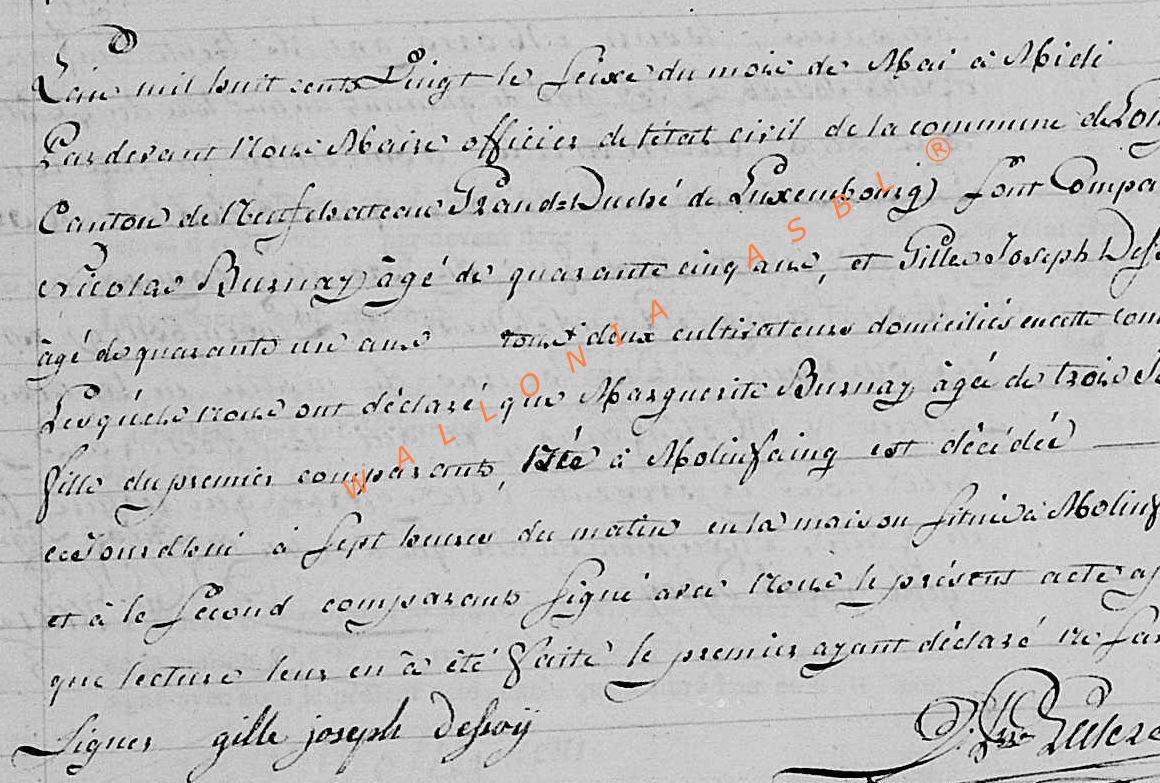 L'an mil huit cents Vingt le Seixe du mois de Mai à Midi
Pardevant Nous Maire officier de l'état civil de la commune de Lon
Canton de Neufchateau Grand=Duché de Luxembourg) sont Compa
Nicolas Burnay âgé de quarante cinq ans, et Gille Joseph Dess
âgé de quarante un ans tous deux cultivateurs domiciliés en cette com
Lesquels Nous ont déclaré que Marguerite Burnay âgée de trois
fille du premier comparant, Née à Molinfaing est décédée
cejourdhui à Sept heures du matin en la maison Située à Molinf
et à le Second comparant Signé avec Nous le présent acte a
que lecture leur en à été faite le premier ayant déclaré Ne Sa
Signer gille joseph Desswÿ
WALLONIA ASBL ®